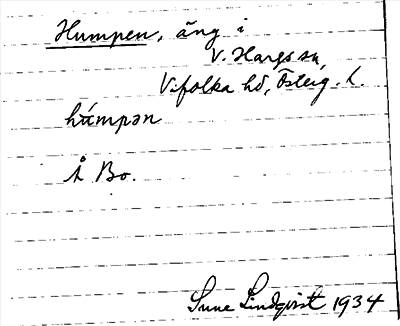 Humpen, äng i
V. Hargs sn,
Vifolka hd, Österg. l.
hámpən
Å Bo.
Sune Lindqvist 1934